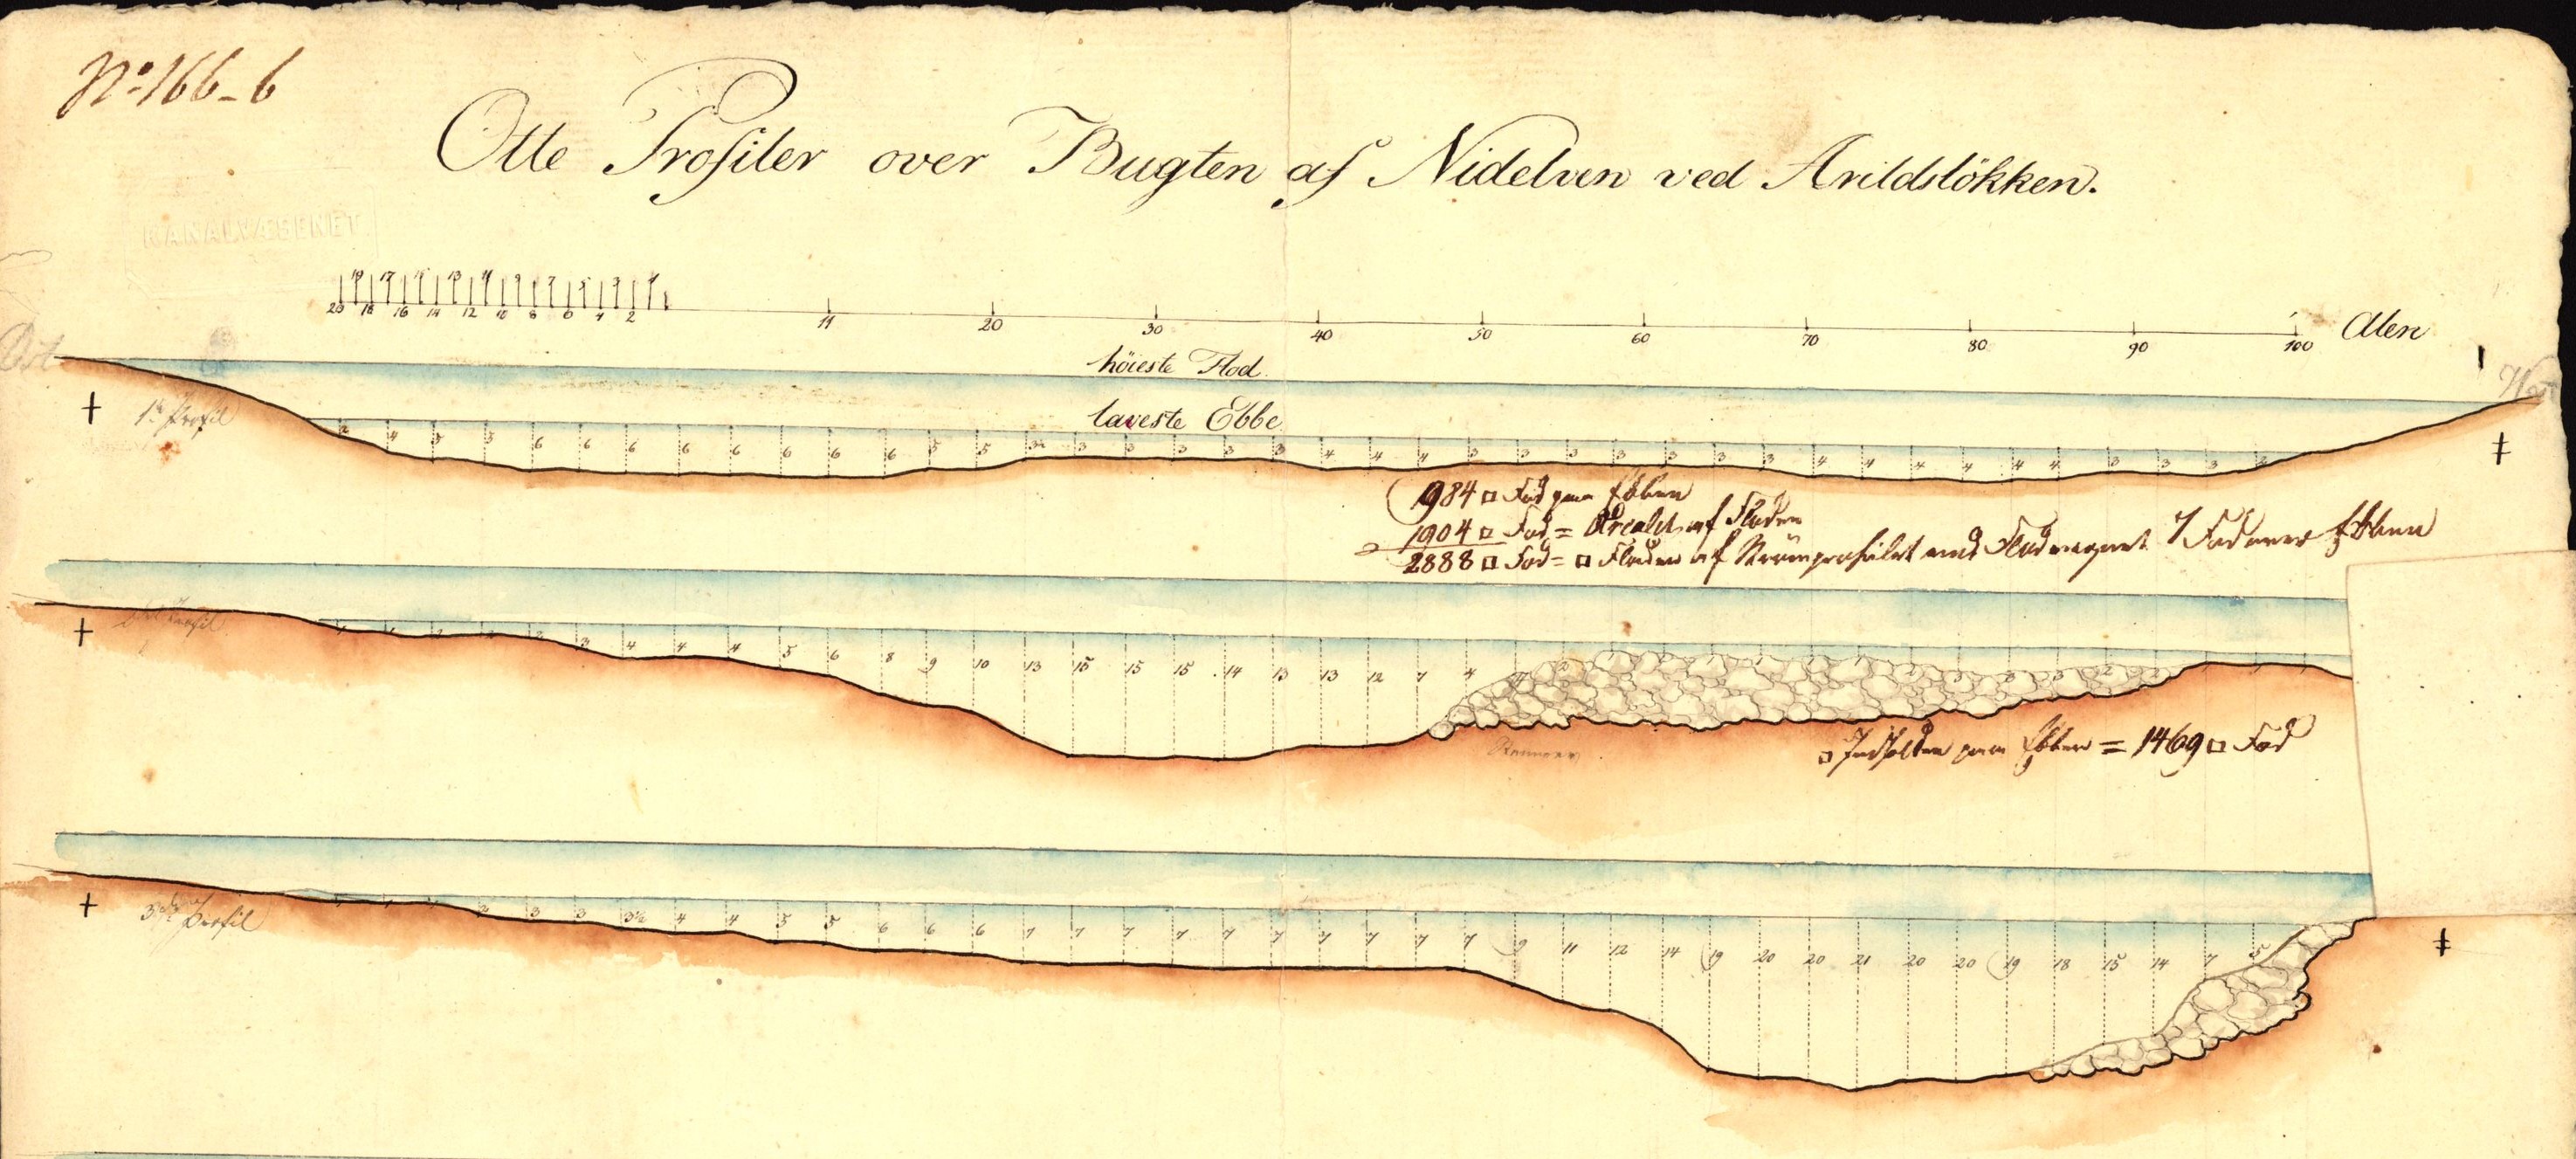 No 166-6
Otte Profiler over Bugten af Nidelven ved Arildslökken.
KANALVÆSENET.
19 17 15 13 11 9 7 5 3 1
20 18 16 14 12 10 8 6 4 2
11 20 30 40 50 60 70 80 90 100 Alen
höieste Flod.
Ost
1te Profil
laveste Ebbe
2 4 5 5 6 6 6 6 6 6 6 6 5 5 3½ 3 3 3 3 3 4 4 4 3 3 3 3 3 3 3 4 4 4 4 4 4 3 3 3 2
984 □ Fod under Ebben
1904 □ Fod = Arealet af Floden
2888 □ Fod = □ Fladen af Strömprofilet med Flodvandet 7 Fod over Ebben
Profil
1 1 2 2 2 3 4 4 4 5 6 8 9 10 13 15 15 15 14 13 13 12 7 4
□ Indholden under Ebben = 1469 □ Fod
3die Profil
1 1 1 2 3 3 3½ 4 4 5 5 6 6 6 7 7 7 7 7 7 7 7 7 7 9 11 12 14 19 20 20 21 20 20 19 18 15 14 7 5